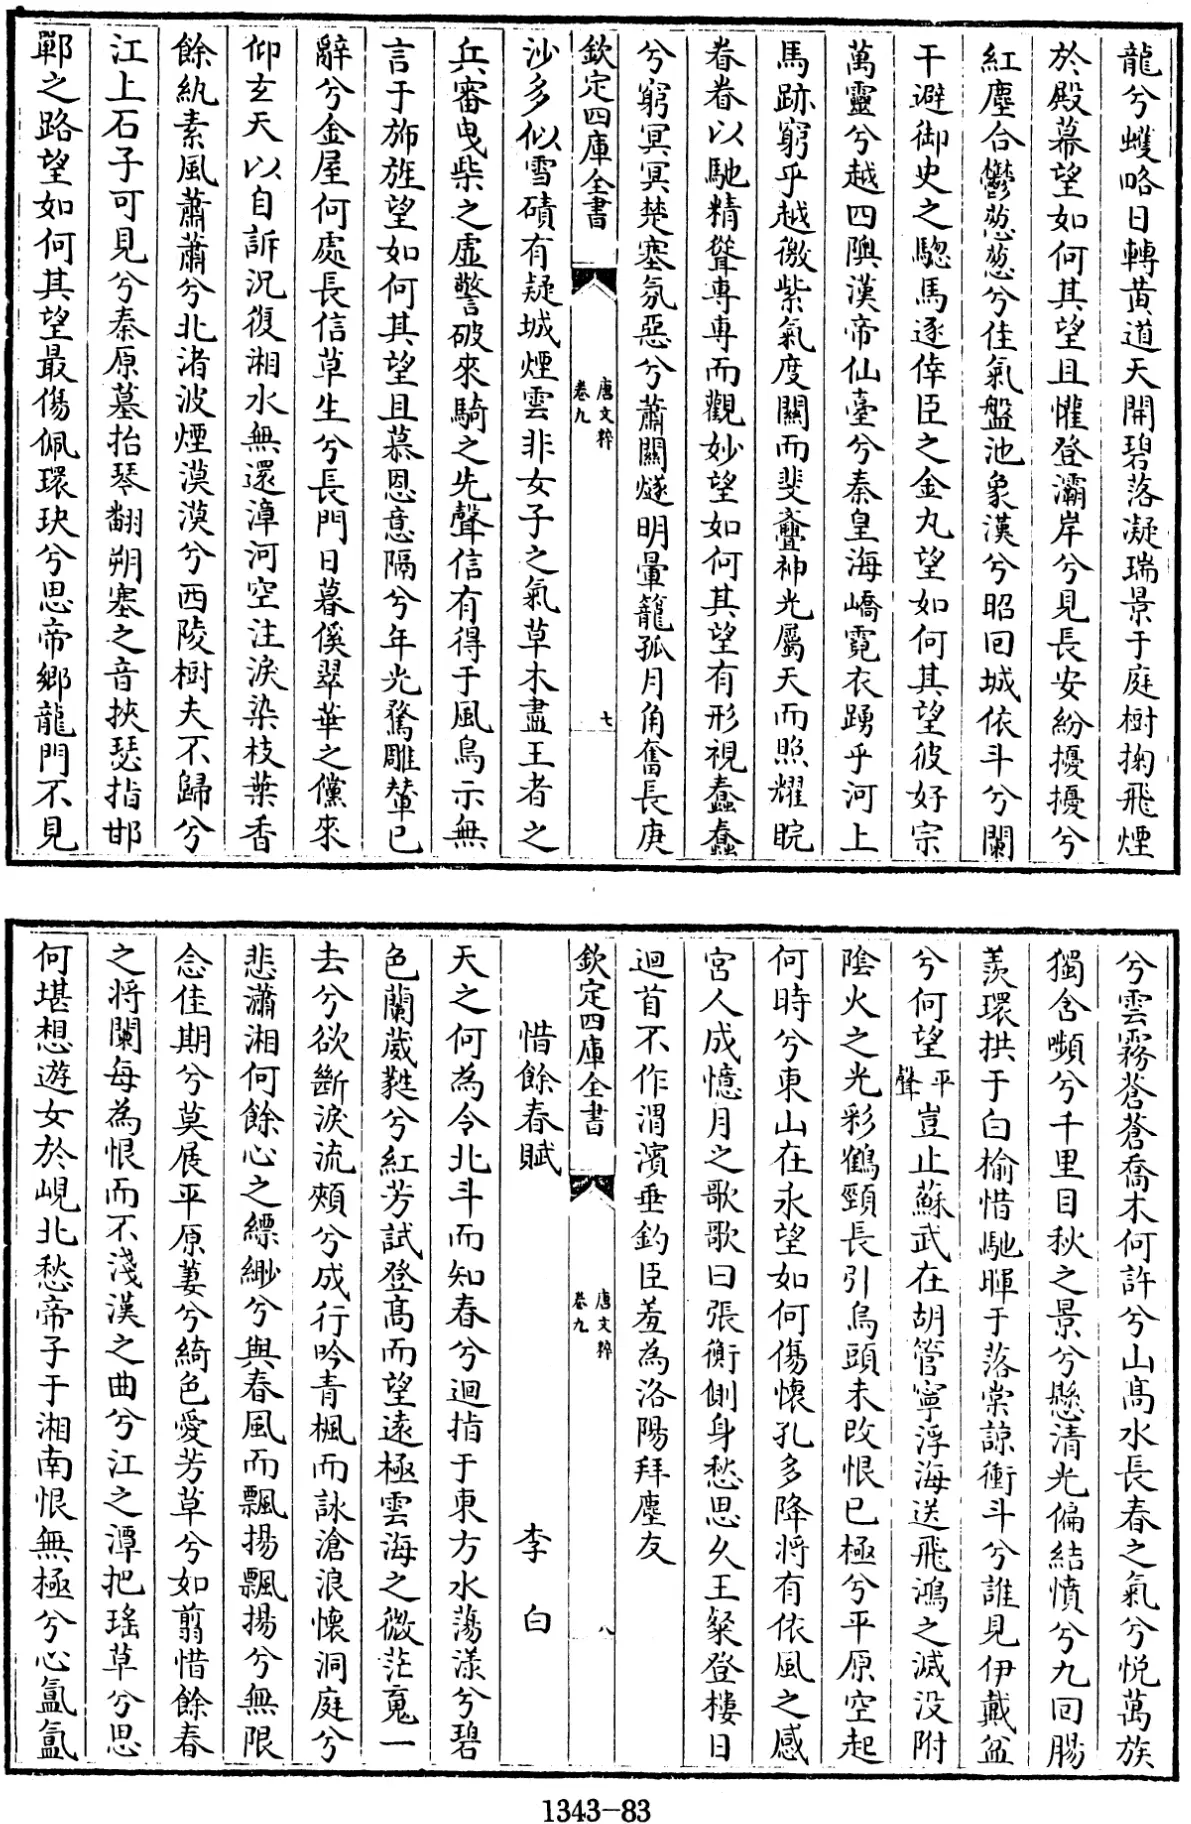 龍兮蠖略日轉黄道天開碧落凝瑞景于庭樹掬飛煙
於殿幕望如何其望且懽登灞岸兮見長安紛擾擾兮
紅塵合鬱葱葱兮佳氣盤池象漢兮昭囘城依斗兮闌
干避御史之驄馬逐倖臣之金丸望如何其望彼好宗
萬靈兮越四隩漢帝仙臺兮秦皇海嶠霓衣踴乎河上
馬跡窮乎越徼紫氣度關而斐亹神光屬天而照耀睆
眷眷以馳精聳專專而觀妙望如何其望有形視蠢蠢
兮窮冥冥楚塞氛惡兮蕭關燧明暈籠孤月角奮長庚
欽定四庫全書
唐文粹
卷九
七
沙多似雪磧有疑城煙雲非女子之氣草木盡王者之
兵審曳柴之虛警破來騎之先聲信有得于風鳥示無
言于斾旌望如何其望且慕恩意隔兮年光騖雕輦已
辭兮金屋何處長信草生兮長門日暮傒翠華之儻來
仰玄天以自訴況復湘水無還漳河空注淚染枝葉香
餘紈素風蕭蕭兮北渚波煙漠漠兮西陵樹夫不歸兮
江上石子可見兮秦原墓抬琴翻朔塞之音挾瑟指邯
鄲之路望如何其望最傷佩環玦兮思帝鄉龍門不見
兮雲霧蒼蒼喬木何許兮山髙水長春之氣兮悦萬族
獨含嚬兮千里目秋之景兮懸清光偏結憤兮九回腸
羨環拱于白榆惜馳暉于落棠諒衝斗兮誰見伊戴盆
兮何望平聲豈止蘇武在胡管寧浮海送飛鴻之滅没附
陰火之光彩鶴頸長引烏頭未改恨已極兮平原空起
何時兮東山在永望如何傷懷孔多降將有依風之感
宮人成憶月之歌歌曰張衡側身愁思久王粲登樓日
迴首不作渭濱垂釣臣羞為洛陽拜塵友
欽定四庫全書
唐文粹
卷九
八
惜餘春賦 李白
天之何為令北斗而知春兮迴指于東方水蕩漾兮碧
色蘭葳蕤兮紅芳試登髙而望遠極雲海之微茫䰟一
去兮欲斷淚流頰兮成行吟青楓而詠滄浪懷洞庭兮
悲瀟湘何餘心之縹緲兮與春風而飄揚飄揚兮無限
念佳期兮莫展平原萋兮綺色愛芳草兮如翦惜餘春
之將闌每為恨而不淺漢之曲兮江之潭把瑤草兮思
何堪想遊女於峴北愁帝子于湘南恨無極兮心氳氳
1343-83